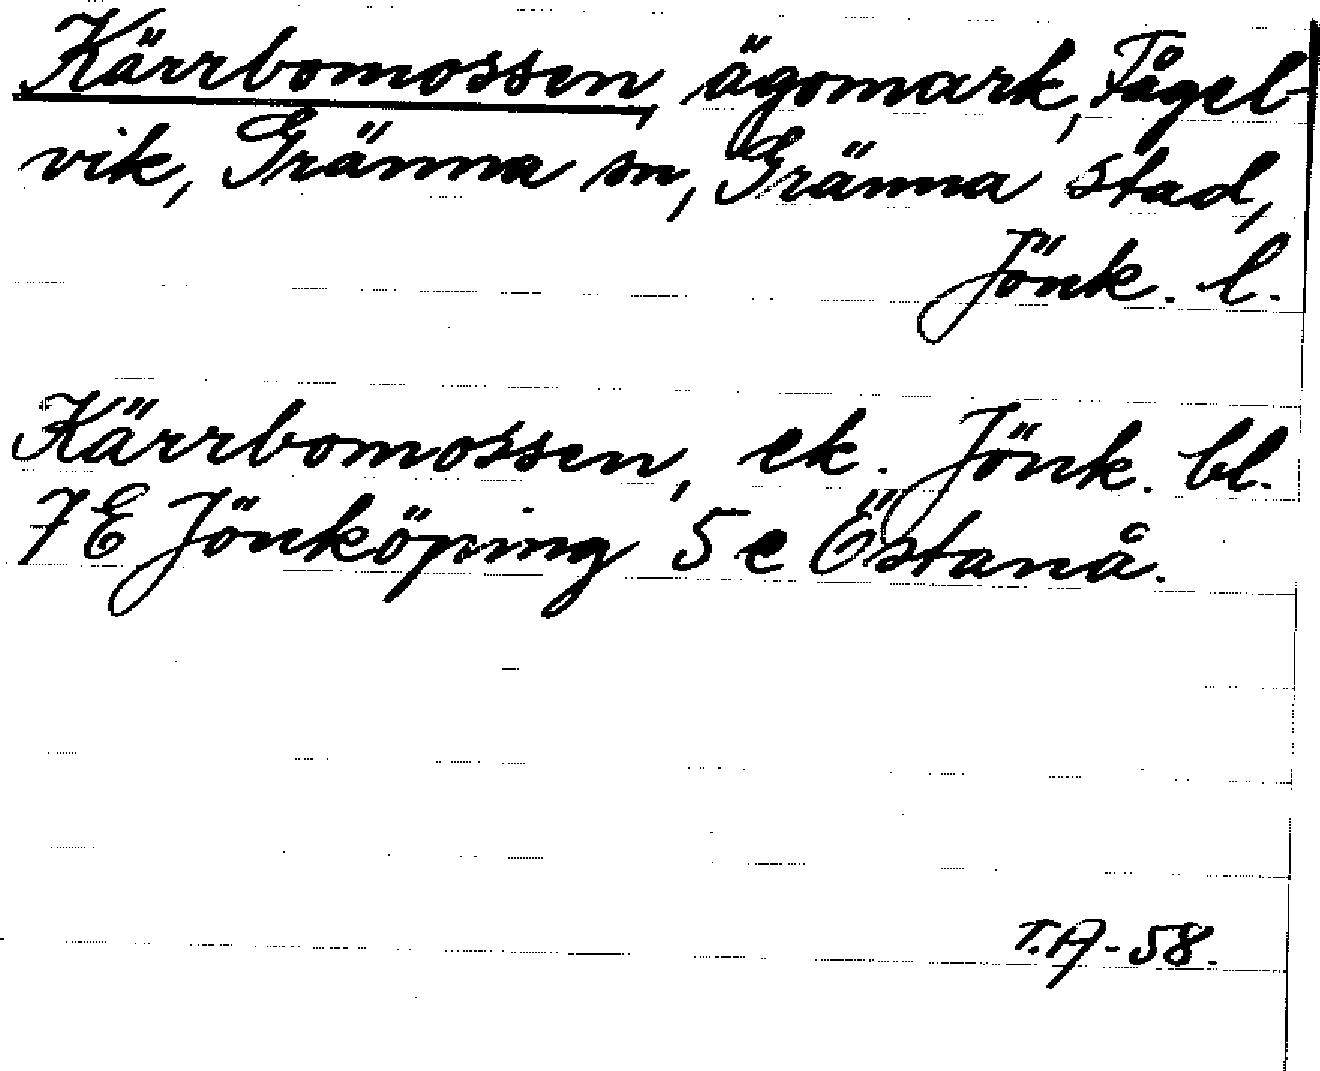 Kärrbomossen, ägomark, Fågel-
vik, Gränna sn, Gränna stad,
Jönk. l.
Kärrbomossen, ek. Jönk. bl.
7E Jönköping 5e Östanå.
T.A-58.